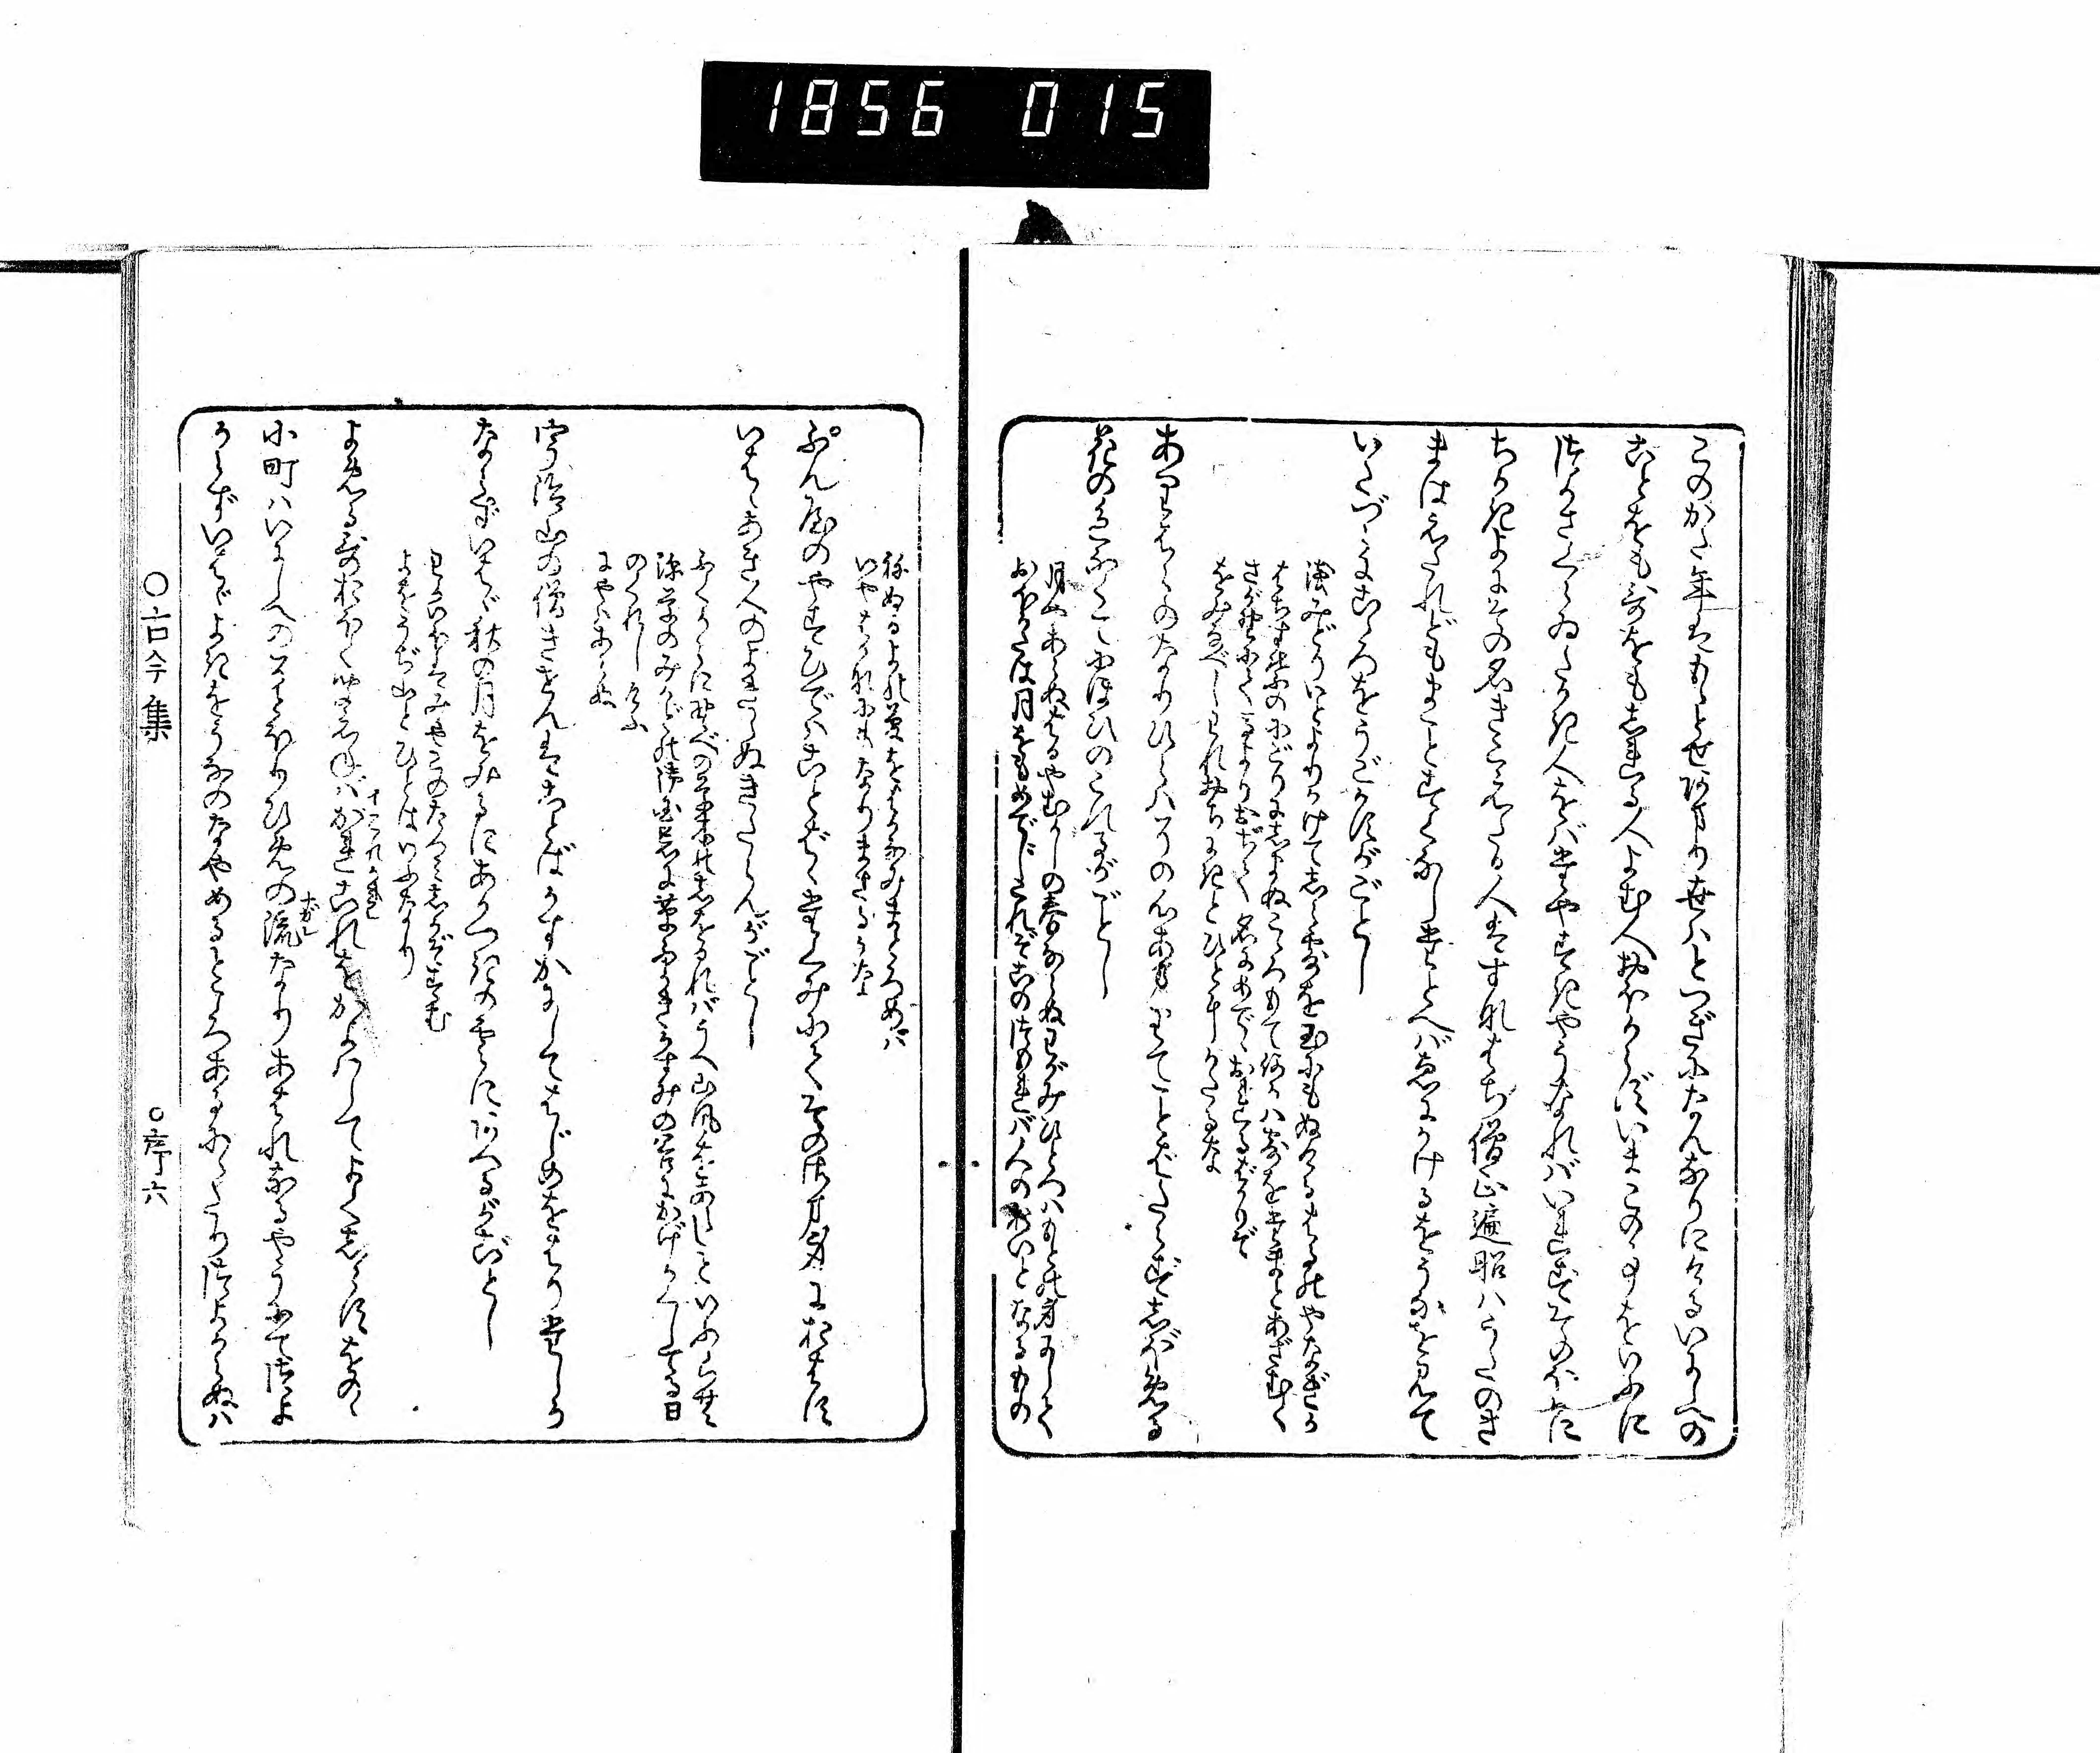 1856 015
このかた年はもゝとせあまり世はとつぎになんなりにけるいにしへの
ことをも哥をもしれる人よむ人おほからずいまこの事をいふに
つかさくらゐたかき人をばたやすきやうなればいれずそのほかに
ちかきよにその名きこえたる人はすなはち僧正遍昭はうたのさ
まはえたれどもまことすくなしたとへばゑにかけるをうなを見て
いたづらにこゝろをうごかすがごとし
浅みどりいとよりかけてしら露を玉にもぬけるはるのやなぎか
はちす葉のにごりにしまぬこゝろもて何かは露を玉とあざむく
さが野にてうまよりおちて 名にめでゝおれるばかりぞ
をみなべしわれおちにきとひとにかたるな
ありはらのなりひらはその心あまりてことばたらずしぼめる
花の色なくてにほひのこれるがごとし
月やあらぬはるやむかしの春ならぬわがみひとつはもとの身にして
おほかたは月をもめでじこれぞこのつもれば人のおいとなるもの
ねぬるよの夢をはかなみまどろめば
いやはかなにもなりまさるかな
ぶん屋のやすひではことばたくみにてそのさま身におはず
いはゞあき人のよききぬきたらんがごとし
ふくからに野べの草木のしをるればうべ山風をあらしといふらむ
深草のみかどの御国忌に草ふかきかすみの谷にかげかくしてる日
のくれしけふ
にやはあらぬ
宇治山の僧きせんはことばかすかにしてはじめをはりたしか
ならずいはゞ秋の月をみるにあかつきの雲にあへるがごとし
わがいほはみやこのたつみしかぞすむ
よをうぢ山とひとはいふなり
よめる哥おほくきこえねばかれこれをかよはしてよくしらずをのゝ
小町はいにしへのそとほりひめの流なりあはれなるやうにてつよ
からずいはゞよきをうなのなやめるところあるににたりつよからぬは
○古今集
○序六